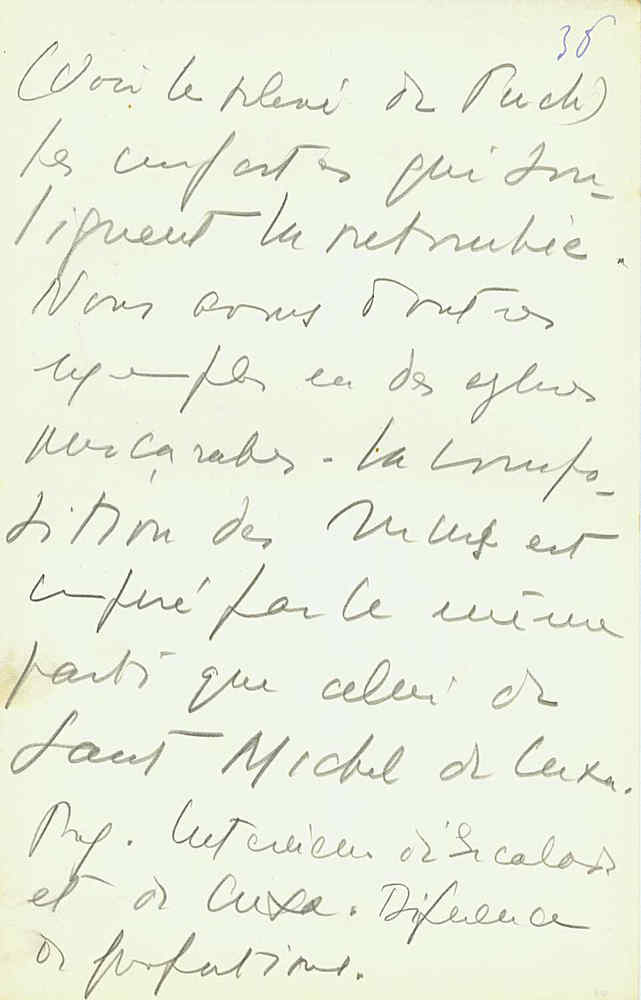 36
(Voir le relevé de Puch)
les cuf artes qui sou-
lignent la retombée.
Nous avons d'autres
exemples en des eglises
moçarabes - La compo-
sition des murs est
inspiré par le même
parti que celui de
Saint Michel de Cuxa.
Proj. Interieur d'Escalada
et de Cuxa. Diference
de proportions.